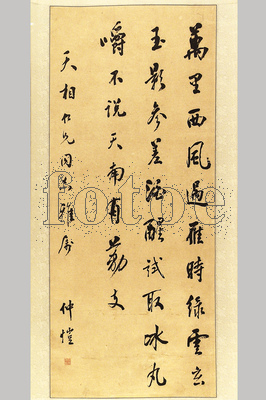 萬里西風過雁時綠雲玄
玉影參差酒醒試取冰丸
嚼不说天南有荔支
天相仁兄同志雅属
仲愷
fotoe